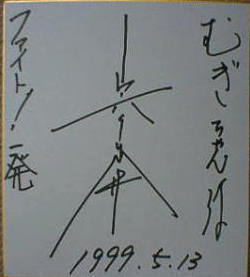 むぎちゃん江
ファイトッ!一発
1999.5.13